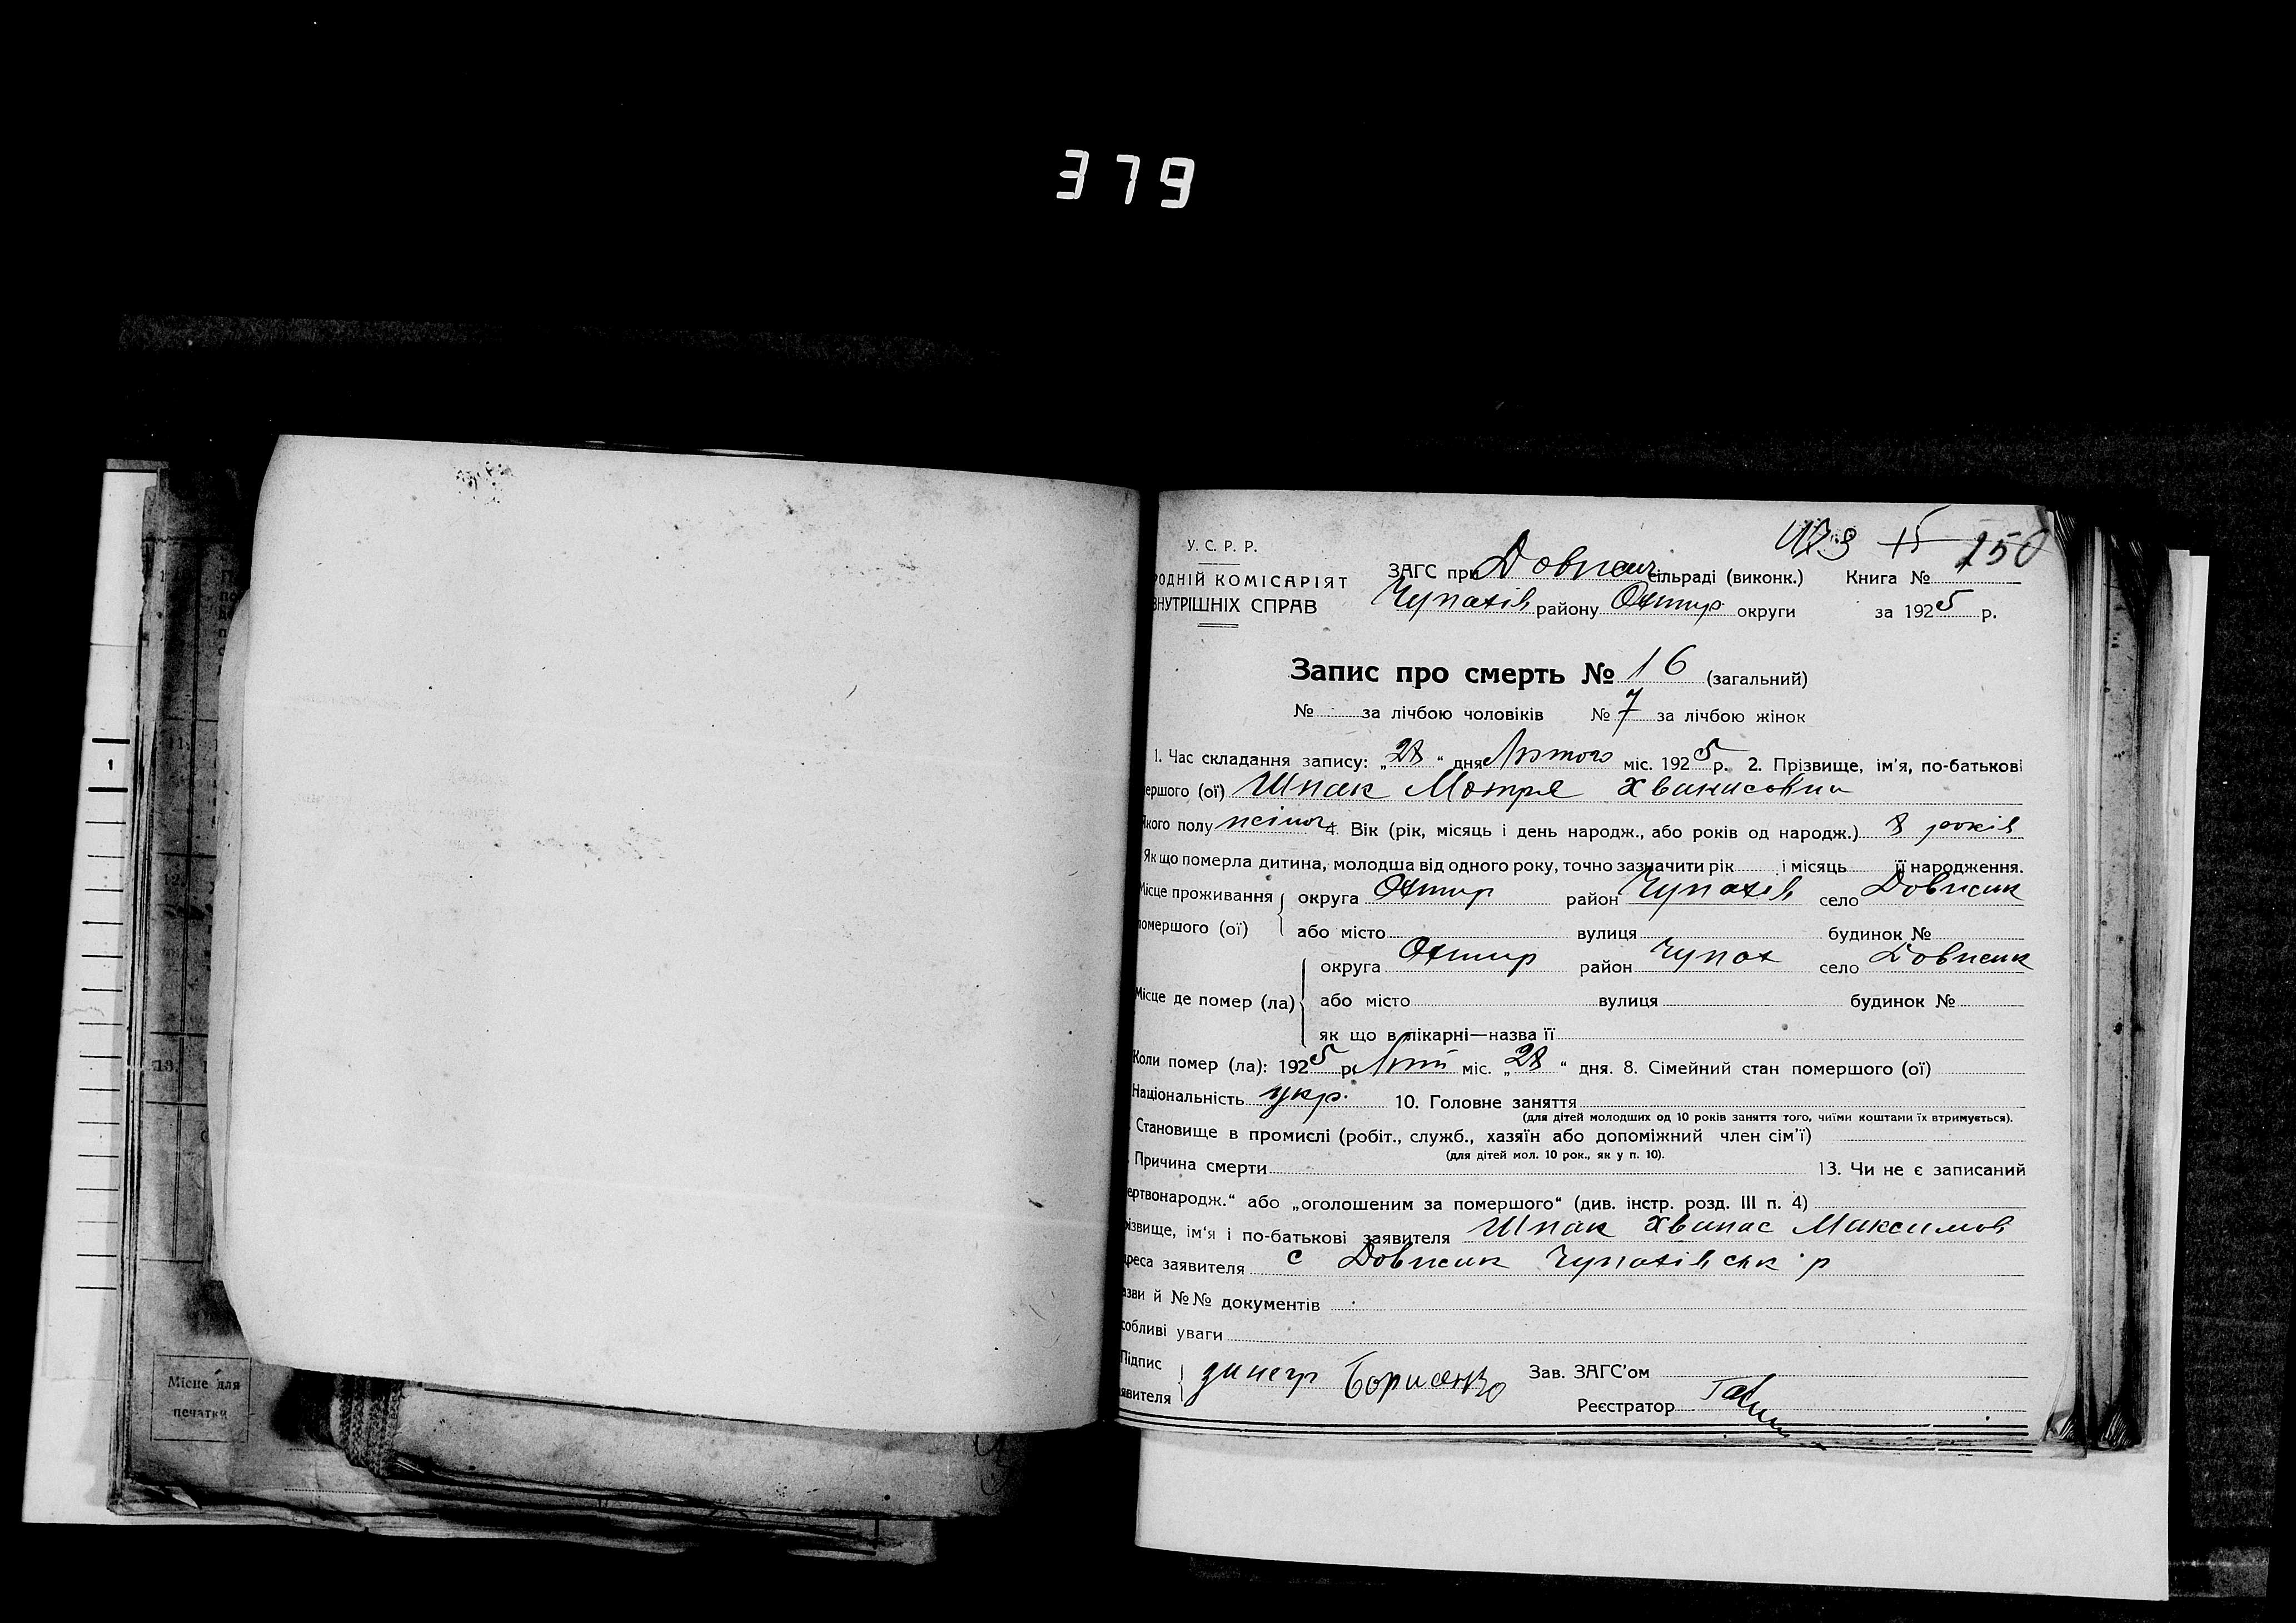 379
15 250
У. С. Р. Р.
РОДНІЙ КОМІСАРІЯТ
ВНУТРІШНІХ СПРАВ
ЗАГС при Довжан сільраді (виконк.) Книга №
Чупахів району Охтир округи за 1925 р.
Запис про смерть № 16 (загальний)
№ за лічбою чоловіків № 7 за лічбою жінок
1. Час складання запису: „28“ дня Лютого міс. 1925 р. 2. Прізвище, ім'я, по-батькові
ершого (ої) Шпак Мотря Хванасовна
якого полу жіноч 4. Вік (рік, місяць і день народж., або років од народж.) 8 років
Як що померла дитина, молодша від одного року, точно зазначити рік і місяць її народження.
Місце проживання округа Охтир район Чупахів село Довжик
помершого (ої) або місто вулиця будинок №
округа Охтир район Чупах село Довжик
Місце де помер (ла) або місто вулиця будинок №
як що в лікарні—назва її
Коли помер (ла): 1925 р. Лют міс. „28“ дня. 8. Сімейний стан помершого (ої)
Національність укр. 10. Головне заняття
(для дітей молодших од 10 років заняття того, чиїми коштами їх втримується).
Становище в промислі (робіт., служб., хазяїн або допоміжний член сім'ї)
(для дітей мол. 10 рок., як у п. 10).
Причина смерти 13. Чи не є записаний
ертвонародж.“ або „оголошеним за помершого“ (див. інстр. розд. III п. 4)
різвище, ім'я і по-батькові заявителя Шпак Хванас Максимов
дреса заявителя с Довжик Чупахівськ р
азви й №№ документів
собливі уваги
Підпис
явителя
Борисенко Зав. ЗАГС'ом
Реєстратор
Місце для
печатки